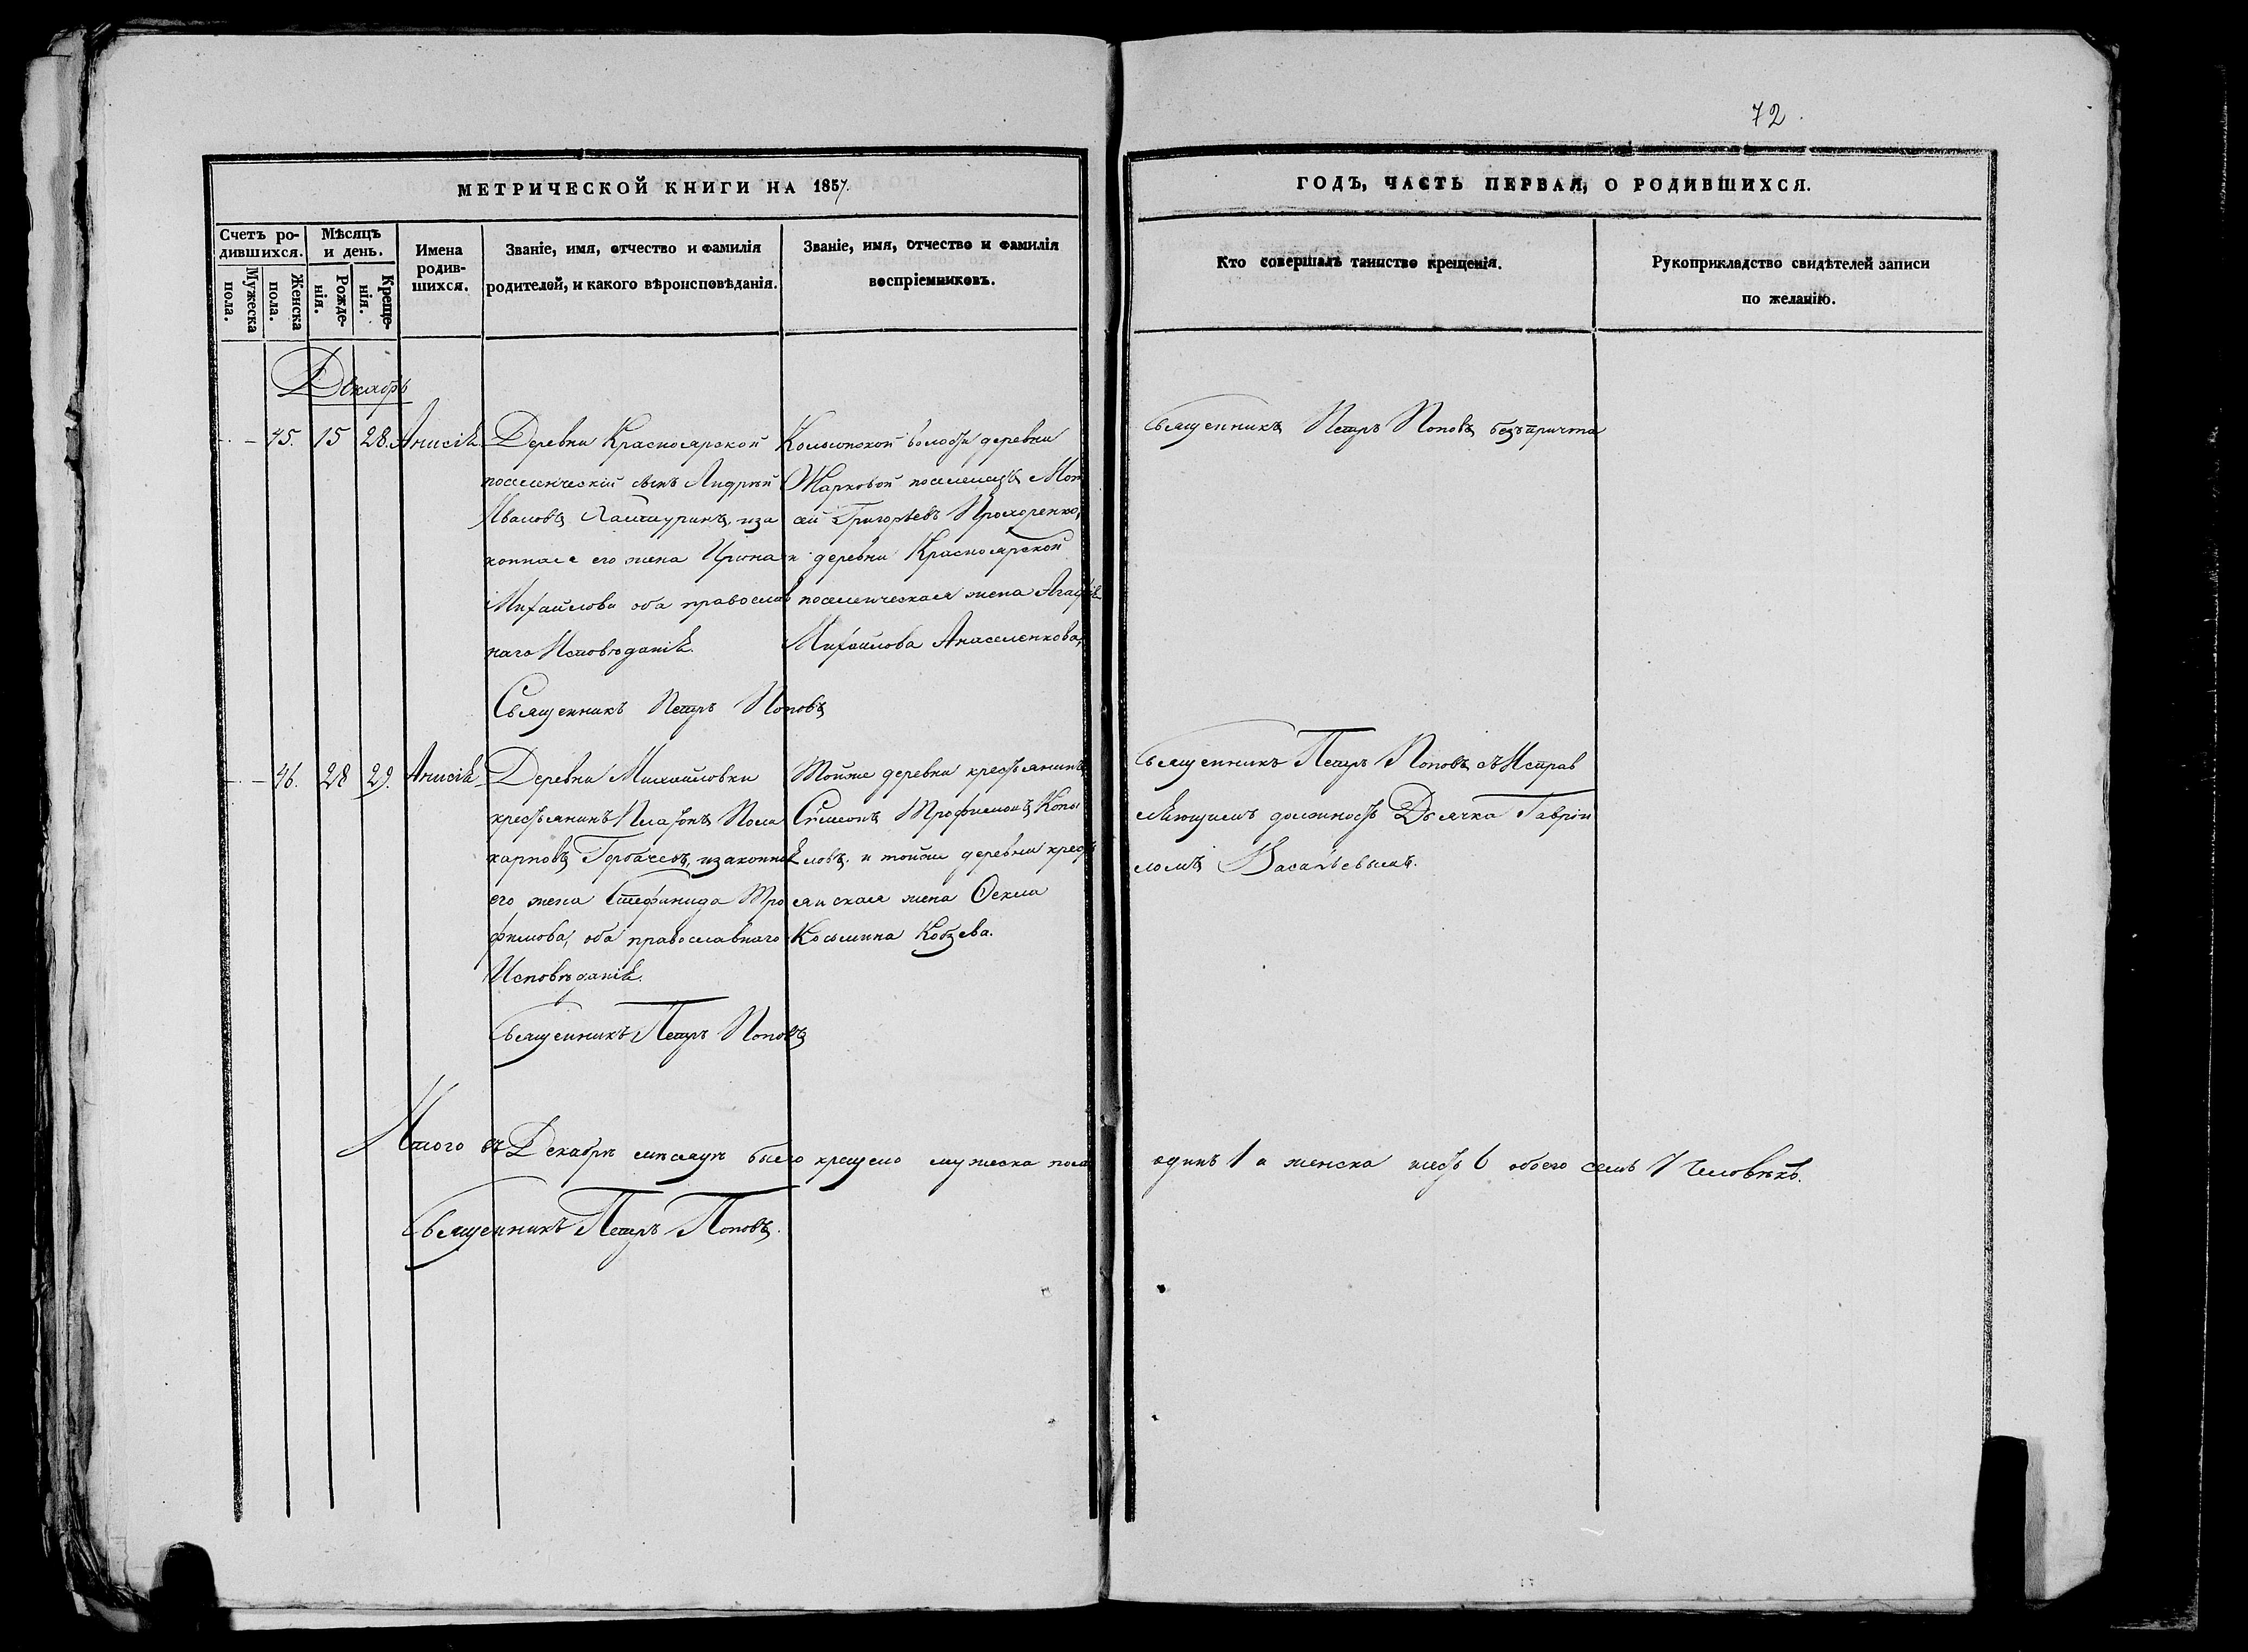 72.
МЕТРИЧЕСКОЙ КНИГИ НА 1857.
ГОДЪ, ЧАСТЬ ПЕРВАЯ, О РОДИВШИХСЯ.
Счетъ ро-
дившихся.
Мужеска
пола.
Женска
пола.
Мѣсяцъ
и день.
Рожде-
нія.
Креще-
нія.
Имена
родив-
шихся.
Званіе, имя, отчество и фамилія
родителей, и какого вѣроисповѣданія.
Званіе, имя, отчество и фамилія
воспріемниковъ.
Кто совершалъ таинство крещенія.
Рукоприкладство свидѣтелей записи
по желанію.
Декабрь
45. 15 28. Анисія
Деревни Красноярской
поселенческій сынъ Андрей
Ивановъ изза
конная его жена Ирина
Михайлова оба православ
наго Исповѣданія.
Священникъ Петръ Поповъ
волости деревни
Жарковой поселенецъ Мои
сей Григорьевъ Прохоренко,
и деревни Красноярской
поселенческая жена Агафія
Михайлова
Священникъ Петръ Поповъ безъ причта
46. 28 29. Анисія
Деревни Михайловки
крестьянинъ Платонъ Поли
карповъ Горбачевъ, изаконная
его жена Стефанида Тро
фимова, оба православнаго
Исповѣданія.
Священникъ Петръ Поповъ
Тойже деревни крестьянинъ
Симеонъ Трофимовъ Копы
ловъ. и тойже деревни крест
янская жена Фекла
Косьмина Кобзева.
Священникъ Петръ Поповъ съ Исправ
ляющимъ должность Дьячка Гаврі
ломъ Васильевымъ.
Итого въ Декабрѣ мѣсяцѣ было крещено мужеска пола одинъ 1 а женска шесть 6 обоего семь 7 человѣкъ.
Священникъ Петръ Поповъ.